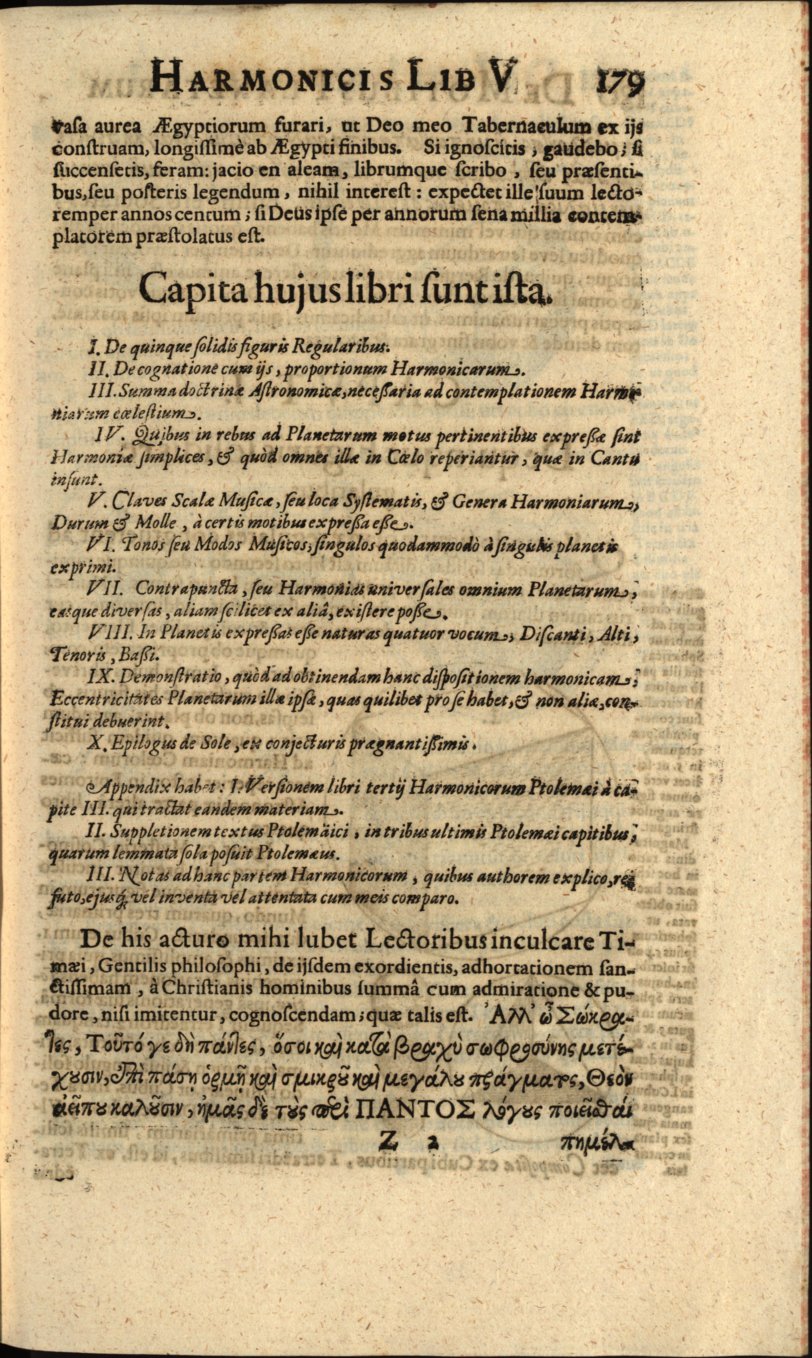 HARMONICIS LIB V 179
vasa aurea Ægyptiorum furari, ut Deo meo Tabernaculum ex ijs
construam, longissimè ab Ægypti finibus. Si ignoscitis, gaudebo; si
succensetis, feram: jacio en aleam, librumque scribo, seu præsenti-
bus, seu posteris legendum, nihil interest: expectet ille suum lecto-
rem per annos centum; si Deus ipse per annorum sena millia contem-
platorem præstolatus est.
Capita hujus libri sunt ista.
I. De quinque solidis figuris Regularibus.
II. De cognatione cum ijs, proportionum Harmonicarum.
III. Summa doctrinæ Astronomicæ, necessaria ad contemplationem Harmo-
niarum cœlestium.
IV. Quibus in rebus ad Planetarum motus pertinentibus expressæ sint
Harmoniæ simplices, & quòd omnes illæ in Cœlo reperiantur, quæ in Cantu
insunt.
V. Claves Scalæ Musicæ, seu loca Systematis, & Genera Harmoniarum,
Durum & Molle, à certis motibus expressa esse.
VI. Tonos seu Modos Musicos, singulos quodammodò à singulis planetis
exprimi.
VII. Contrapuncta, seu Harmonias universales omnium Planetarum,
easque diversas, aliam scilicet ex aliâ, existere posse.
VIII. In Planetis expressas esse naturas quatuor vocum, Discanti, Alti,
Tenoris, Bassi.
IX. Demonstratio, quòd ad obtinendam hanc dispositionem harmonicam,
Eccentricitates Planetarum illæ ipsæ, quas quilibet pro se habet, & non aliæ, con-
stitui debuerint.
X. Epilogus de Sole, ex conjecturis prægnantissimis.
Appendix habet: I. Versionem libri tertij Harmonicorum Ptolemæi à ca-
pite III. qui tractat eandem materiam.
II. Suppletionem textus Ptolemäici, in tribus ultimis Ptolemæi capitibus,
quarum lemmata sola posuit Ptolemæus.
III. Notas ad hanc partem Harmonicorum, quibus authorem explico, re-
futo, ejusq́; vel inventa vel attentata cum meis comparo.
De his acturo mihi lubet Lectoribus inculcare Ti-
mæi, Gentilis philosophi, de ijsdem exordientis, adhortationem san-
ctissimam, à Christianis hominibus summâ cum admiratione & pu-
dore, nisi imitentur, cognoscendam; quæ talis est. Ἀλλ' ὦ Σώκρα-
τες, Τοῦτό γε δὴ πάντες, ὅσοι καὶ κατὰ βραχὺ σωφροσύνης μετέ-
χουσιν, ἐπὶ πάσῃ ὁρμῇ καὶ σμικροῦ καὶ μεγάλου πράγματος, Θεὸν
ἀεί που καλοῦσιν, ἡμᾶς δὲ τοὺς περὶ ΠΑΝΤΟΣ λόγους ποιεῖσθαί
Z 2 πη μέλ-